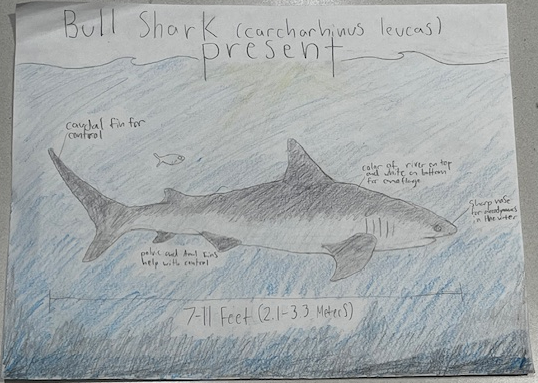 Bull Shark (carcharhinus leucas)
present
caudal fin for
control
color of river on top
and white on bottom
for camoflage
Sharp nose
for
in the water
pelvic and anal fins
help with control
7-11 Feet (2.1-3.3 Meters)